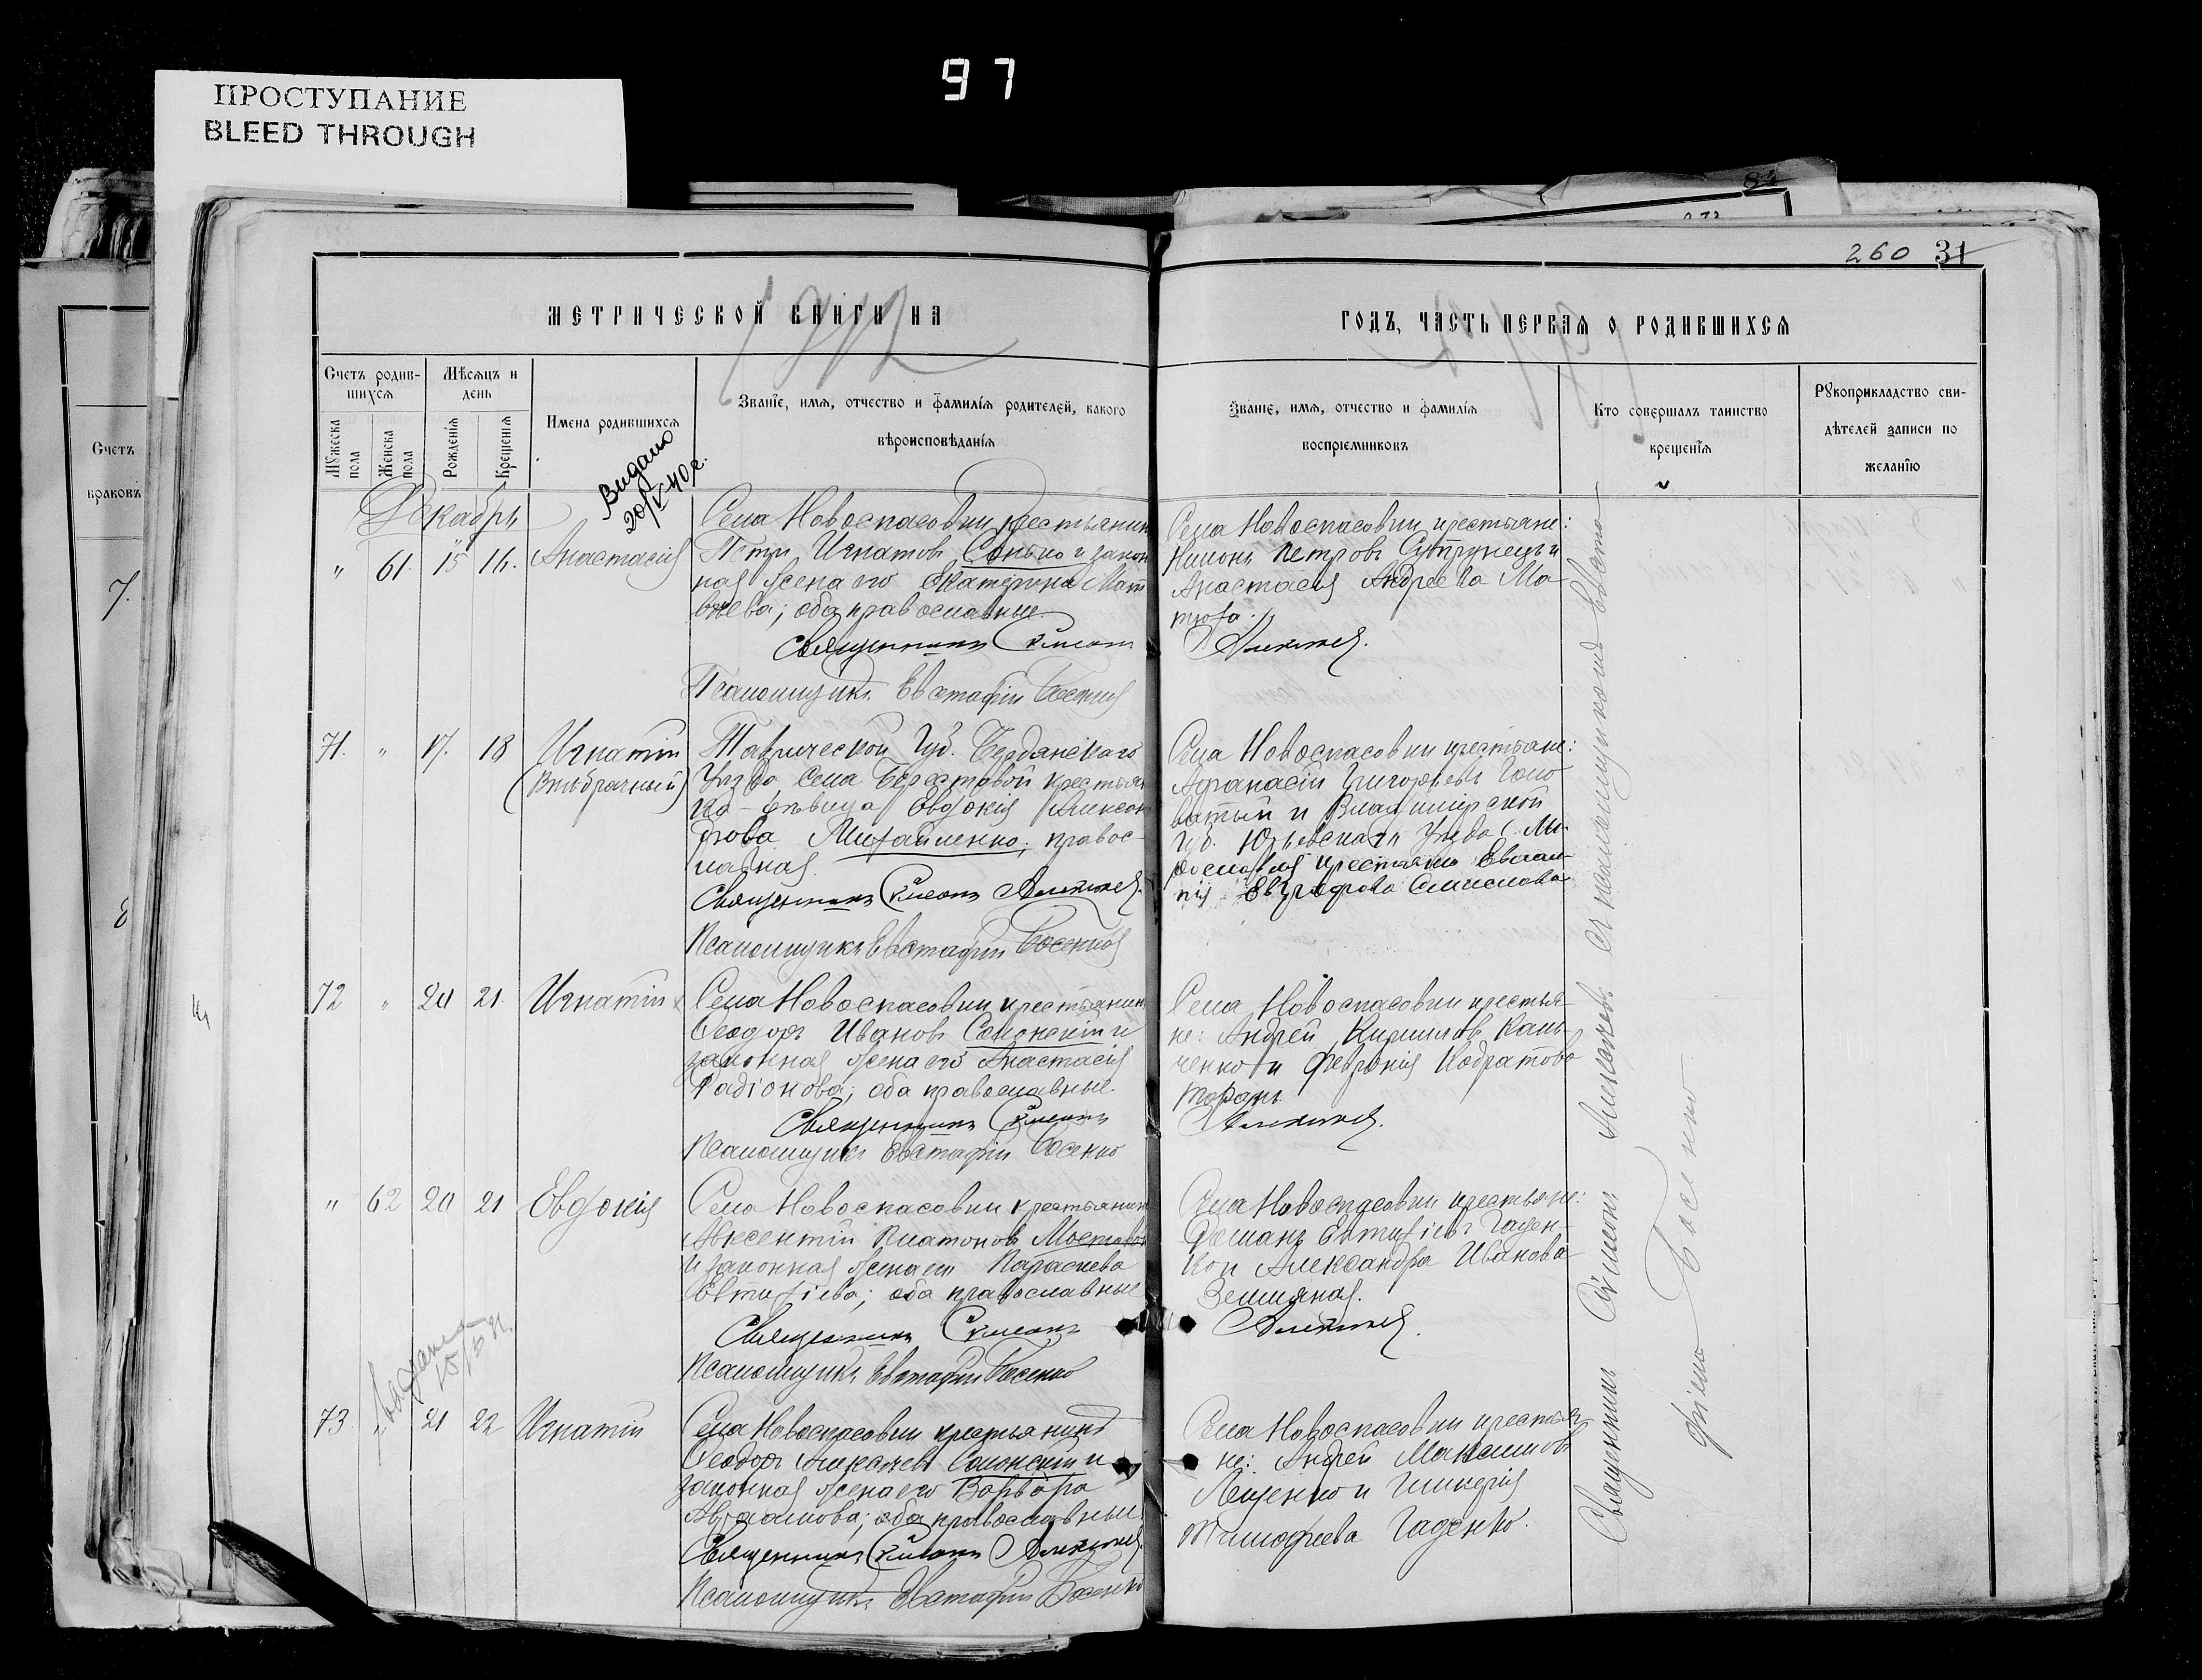 97
ПРОСТУПАНИЕ
BLEED THROUGH
84
273
260 31
МЕТРИЧЕСКОЙ КНИГИ НА
1912
ГОДЪ, ЧАСТЬ ПЕРВАЯ О РОДИВШИХСЯ
Счетъ
браковъ
7.
8
Счетъ родив-
шихся
Мужеска пола
Женска пола
Мѣсяцъ и день
Рожденія
Крещенія
Имена родившихся
Званіе, имя, отчество и фамилія родителей, какого
вѣроисповѣданія
Званіе, имя, отчество и фамилія
воспріемниковъ
Кто совершалъ таинство
крещенія
Рукоприкладство сви-
дѣтелей записи по
желанію
Видано
20/V-40 г.
Декабрь
" 61. 15 16. Анастасія
Села Новоспасовки крестьянин
Петръ Игнатовъ Сонько и закон
ная жена его Екатерина Мат
вѣева; оба православные.
Священникъ Симеонъ
Псаломщикъ Евстафій Босенко
Села Новоспасовки крестьяне:
Никонъ Петровъ Супрунецъ и
Анастасія Андреева Ма-
тюха.
Алексѣевъ.
71. " 17. 18 Игнатій
(Внѣбрачный)
Таврической Губ. Бердянскаго
Уѣзда Села Берестовой крестьян
ка - дѣвица Евдокія Алексан
дрова Михайленко; правос-
лавная.
Священникъ Симеонъ Алексѣевъ.
Псаломщикъ Евстафій Босенко
Села Новоспасовки крестьяне:
Афанасій Григорьевъ Голо
ватый и Владимірской
Губ. Юрьевскаго Уѣзда с. Ми-
рославля крестьянка Евлам-
пія Евграфова Смыслова
72 " 20 21. Игнатій
Села Новоспасовки крестьянин
Ѳеодоръ Ивановъ Солонскій и
законная жена его Анастасія
Радіонова; оба православные.
Священникъ Симеонъ
Псаломщикъ Евстафій Босенко
Села Новоспасовки крестья-
не: Андрей Кирилловъ Каль-
ченко и Февронія Кодратова
Торянъ
Алексѣевъ.
" 62 20 21 Евдокія
Села Новоспасовки крестьянин
Авксентій Платоновъ Мостовой
и законная жена его Параскева
Евтихіева; оба православные
Священникъ Симеонъ
Псаломщикъ Евстафій Босенко
Села Новоспасовки крестьяне:
Романъ Евтихіевъ Гаден-
ко и Александра Иванова
Земляная.
Алексѣевъ.
73. " 21 22 Игнатій
Села Новоспасовки крестьянинъ
Ѳеодоръ Алексѣевъ Солонскій и
законная жена его Варвара
Авраамова; оба православные
Священникъ Симеонъ Алексѣевъ.
Псаломщикъ Евстафій Босенко
Села Новоспасовки крестья-
не: Андрей Максимовъ
Лещенко и Гликерія
Тимофеева Гаденко.
Священникъ Симеонъ Алексѣевъ съ псаломщикомъ Евста-
фіемъ Босенко